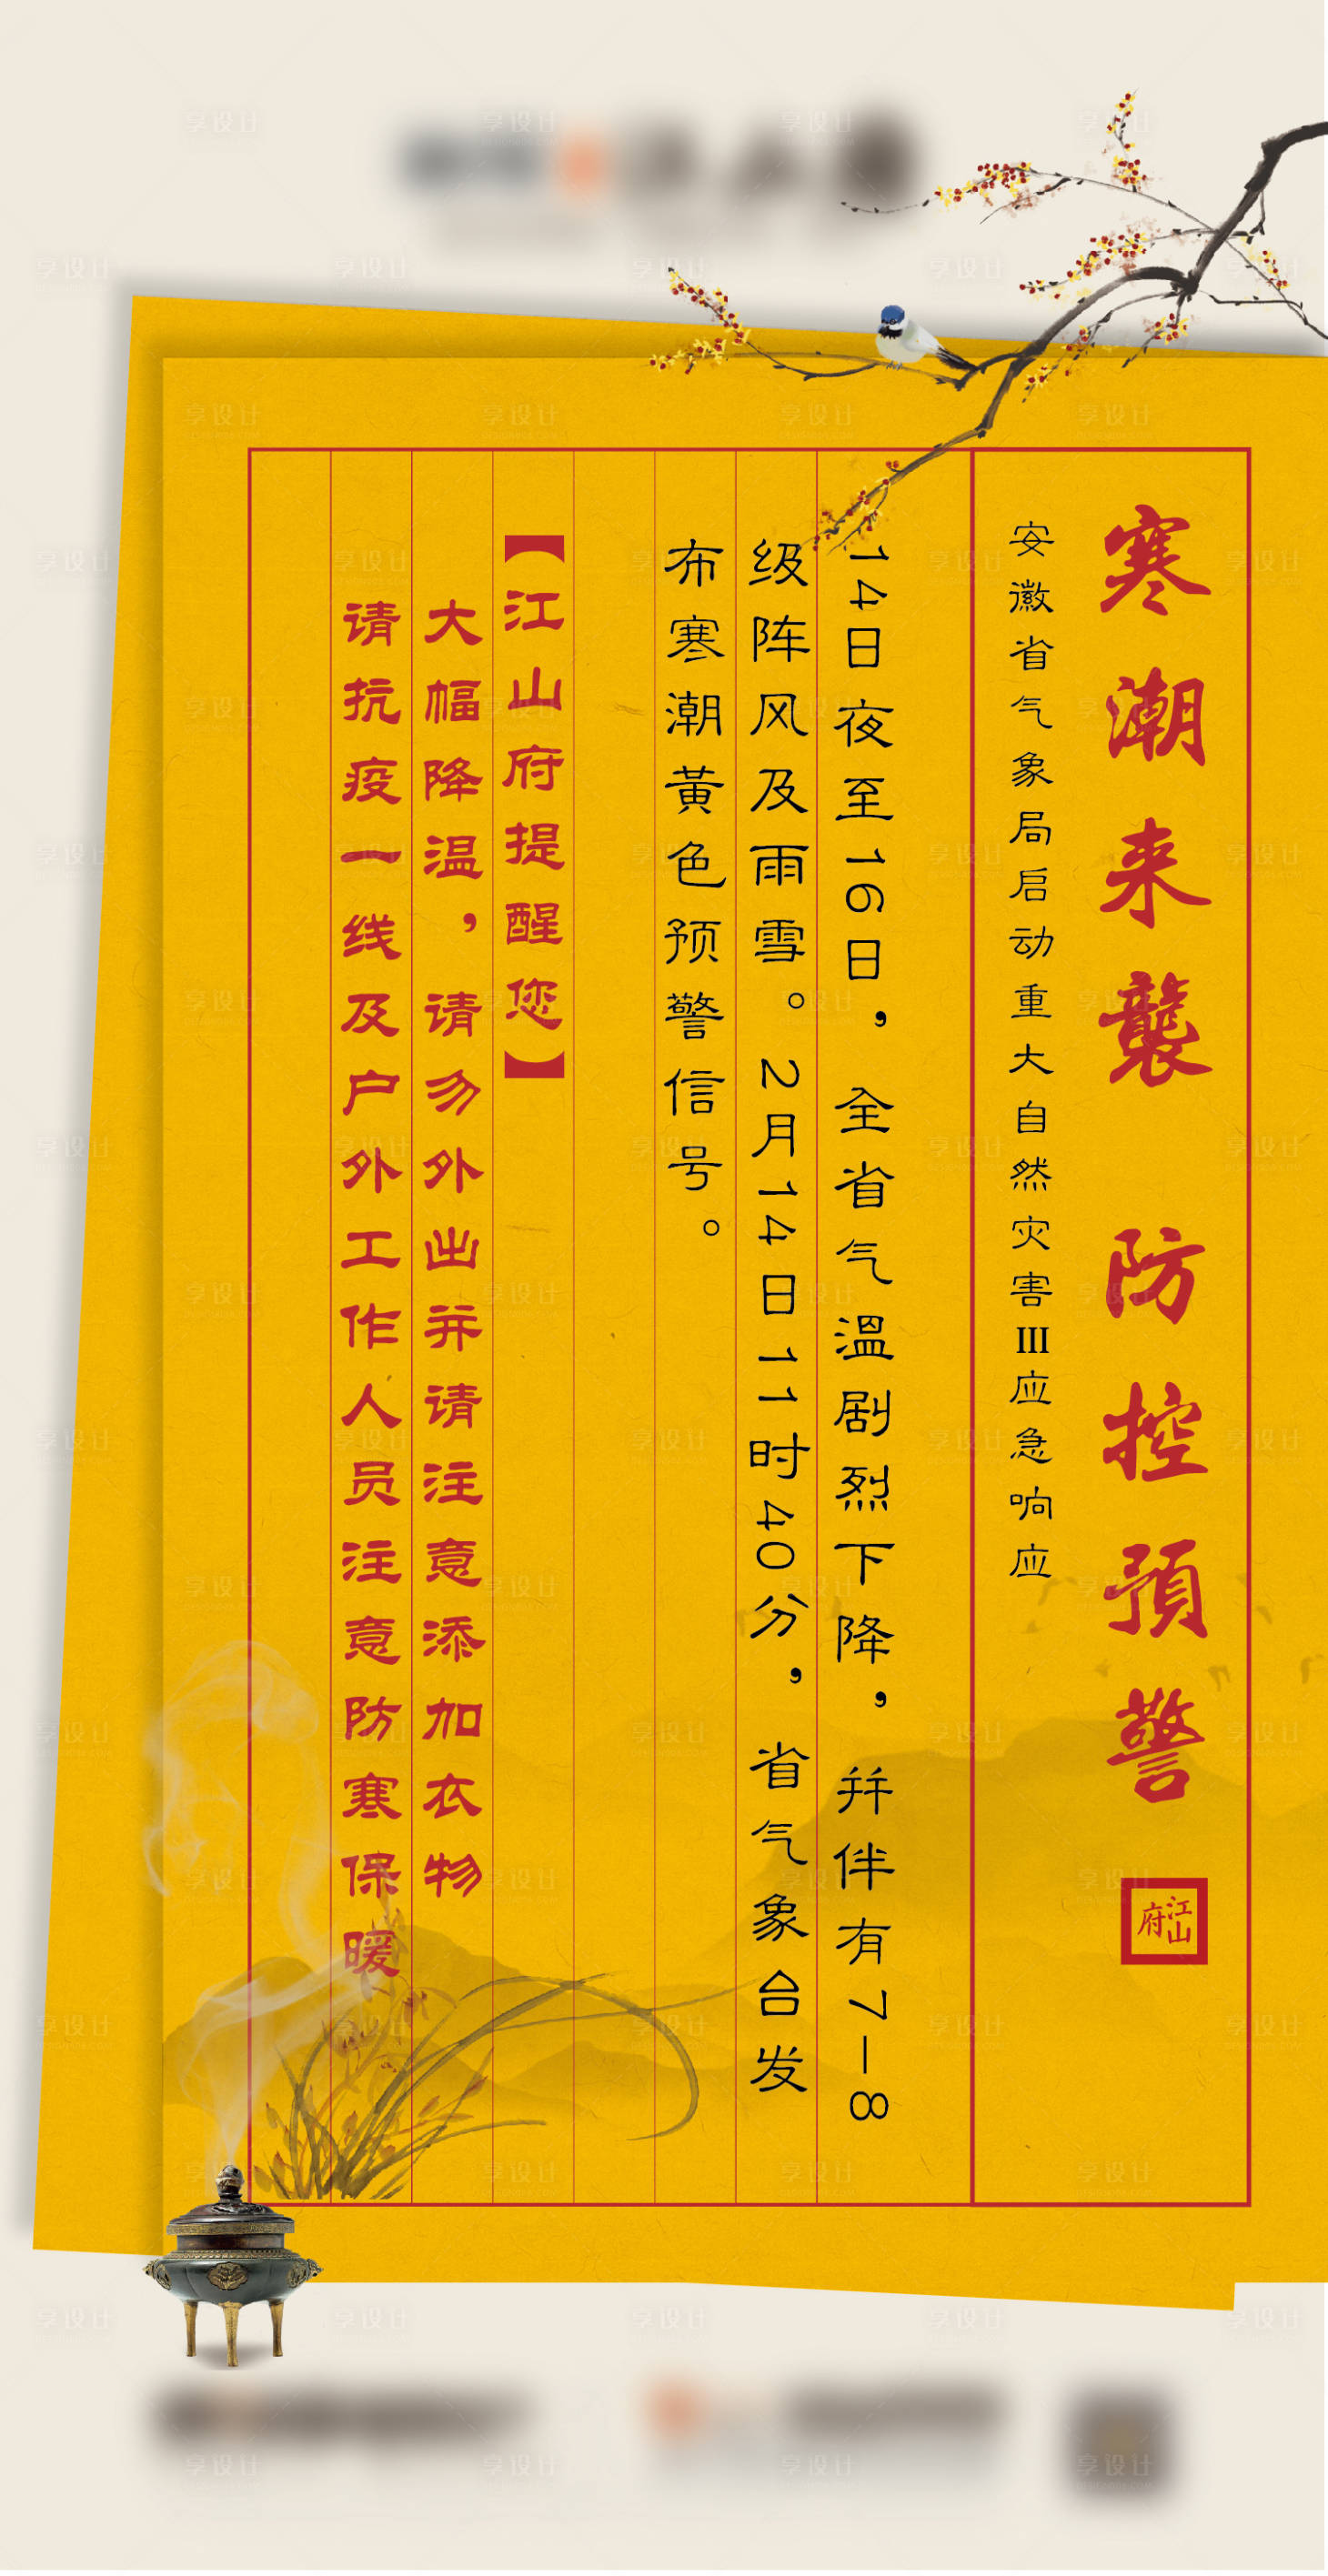 寒潮来襲 防控預警
江山府
安徽省气象局启动重大自然灾害III应急响应
14日夜至16日，全省气温剧烈下降，并伴有7—8
级阵风及雨雪。2月14日11时40分，省气象台发
布寒潮黄色预警信号。
【江山府提醒您】
大幅降温，请勿外出并请注意添加衣物
请抗疫一线及户外工作人员注意防寒保暖
享设计